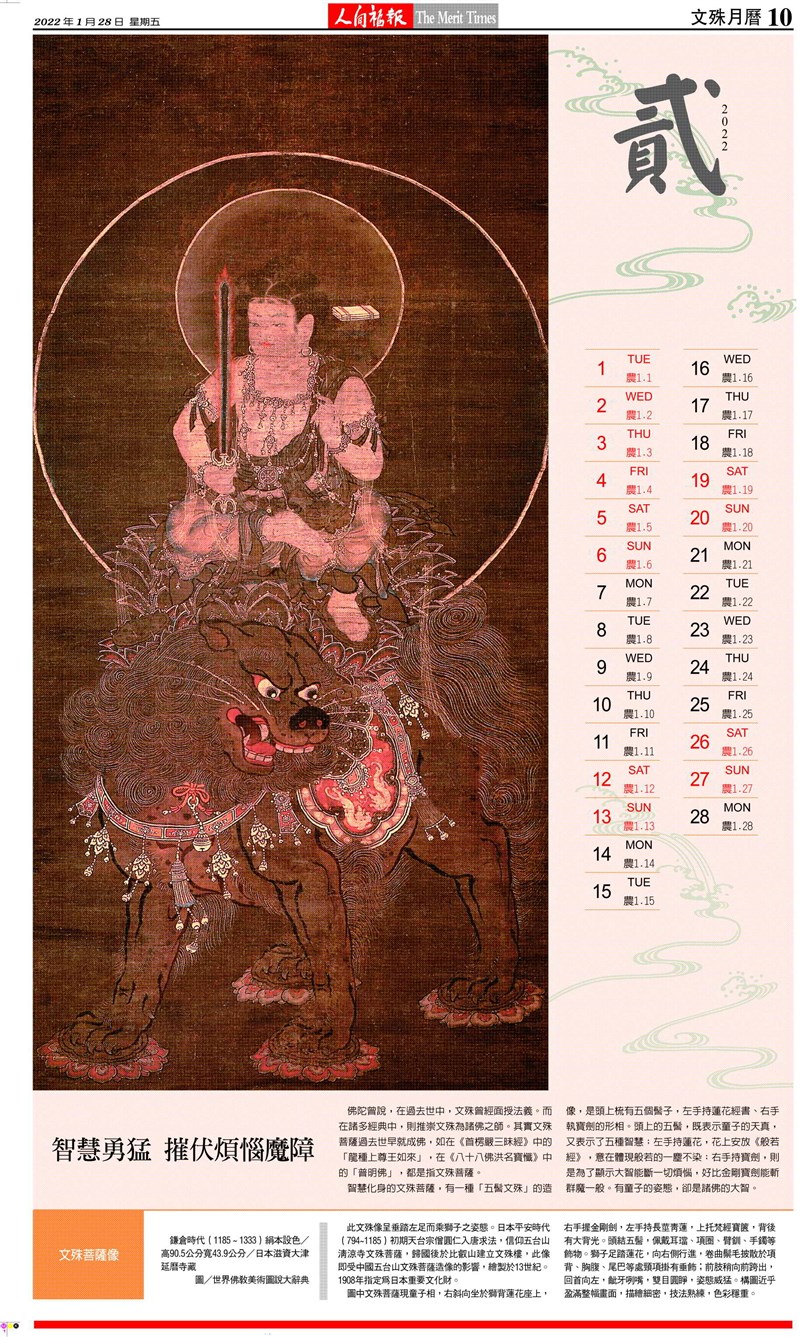 2022 年 1 月 28 日 星期五
人间福報 The Merit Times
文殊月曆 10
貳
2022
1 TUE 農1.1
2 WED 農1.2
3 THU 農1.3
4 FRI 農1.4
5 SAT 農1.5
6 SUN 農1.6
7 MON 農1.7
8 TUE 農1.8
9 WED 農1.9
10 THU 農1.10
11 FRI 農1.11
12 SAT 農1.12
13 SUN 農1.13
14 MON 農1.14
15 TUE 農1.15
16 WED 農1.16
17 THU 農1.17
18 FRI 農1.18
19 SAT 農1.19
20 SUN 農1.20
21 MON 農1.21
22 TUE 農1.22
23 WED 農1.23
24 THU 農1.24
25 FRI 農1.25
26 SAT 農1.26
27 SUN 農1.27
28 MON 農1.28
智慧勇猛 摧伏煩惱魔障
佛陀曾說，在過去世中，文殊曾經面授法義。而
在諸多經典中，則推崇文殊為諸佛之師。其實文殊
菩薩過去世早就成佛，如在《首楞嚴三昧經》中的
「龍種上尊王如來」，在《八十八佛洪名寶懺》中
的「普明佛」，都是指文殊菩薩。
智慧化身的文殊菩薩，有一種「五髻文殊」的造
像，是頭上梳有五個髻子，左手持蓮花經書、右手
執寶劍的形相。頭上的五髻，既表示童子的天真，
又表示了五種智慧；左手持蓮花，花上安放《般若
經》，意在體現般若的一塵不染；右手持寶劍，則
是為了顯示大智能斷一切煩惱，好比金剛寶劍能斬
群魔一般。有童子的姿態，卻是諸佛的大智。
文殊菩薩像
鎌倉時代（1185～1333）絹本設色／
高90.5公分寬43.9公分／日本滋賀大津
延曆寺藏
圖／世界佛教美術圖說大辭典
此文殊像呈垂踏左足而乘獅子之姿態。日本平安時代
（794~1185）初期天台宗僧圓仁入唐求法，信仰五台山
清涼寺文殊菩薩，歸國後於比叡山建立文殊樓，此像
即受中國五台山文殊菩薩造像的影響，繪製於13世紀。
1908年指定為日本重要文化財。
圖中文殊菩薩現童子相，右斜向坐於獅背蓮花座上，
右手握金剛劍，左手持長莖青蓮，上托梵經寶篋，背後
有大背光。頭結五髻，佩戴耳璫、項圈、臂釧、手鐲等
飾物。獅子足踏蓮花，向右側行進，卷曲鬃毛披散於項
背、胸腹、尾巴等處頸項掛有垂飾；前肢稍向前跨出，
回首向左，齜牙咧嘴，雙目圓睜，姿態威猛。構圖近乎
盈滿整幅畫面，描繪細密，技法熟練，色彩穩重。